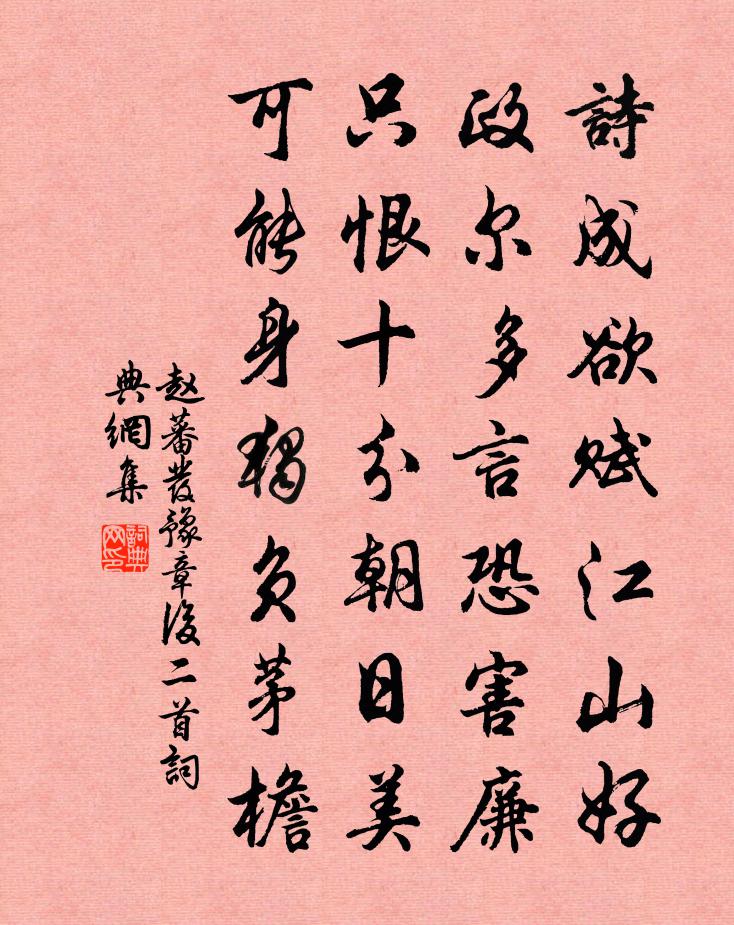 詩成欲赋江山好
政尔多言恐害廉
只恨十分朝日美
可能身獨负茅檐
赵蕃發豫章後二首詞
典網集
詞典网印